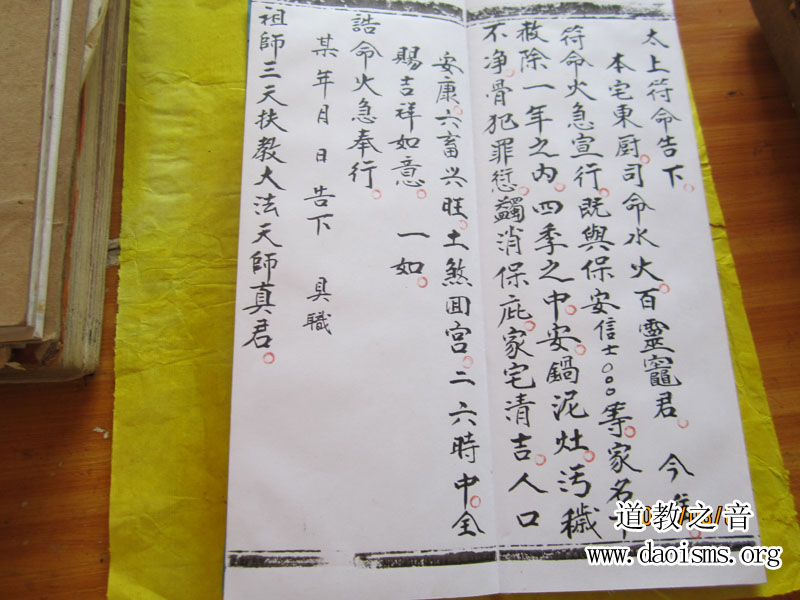 太上符命告下。
本宅東厨。司命水火。百靈竈君。 今
符命火急宣行。既與保安信士○○○等家名下
赦除一年之内。四季之中。安鍋泥灶。汚穢
不净。骨犯罪愆。蠲消保庇。家宅清吉。人口
安康。六畜兴旺。土煞囬宫。二六時中。全
賜吉祥如意。一如
誥命火急奉行。
某年月日告下 具職
祖師三天扶教大法天師真君。
道教之音
www.daoisms.org